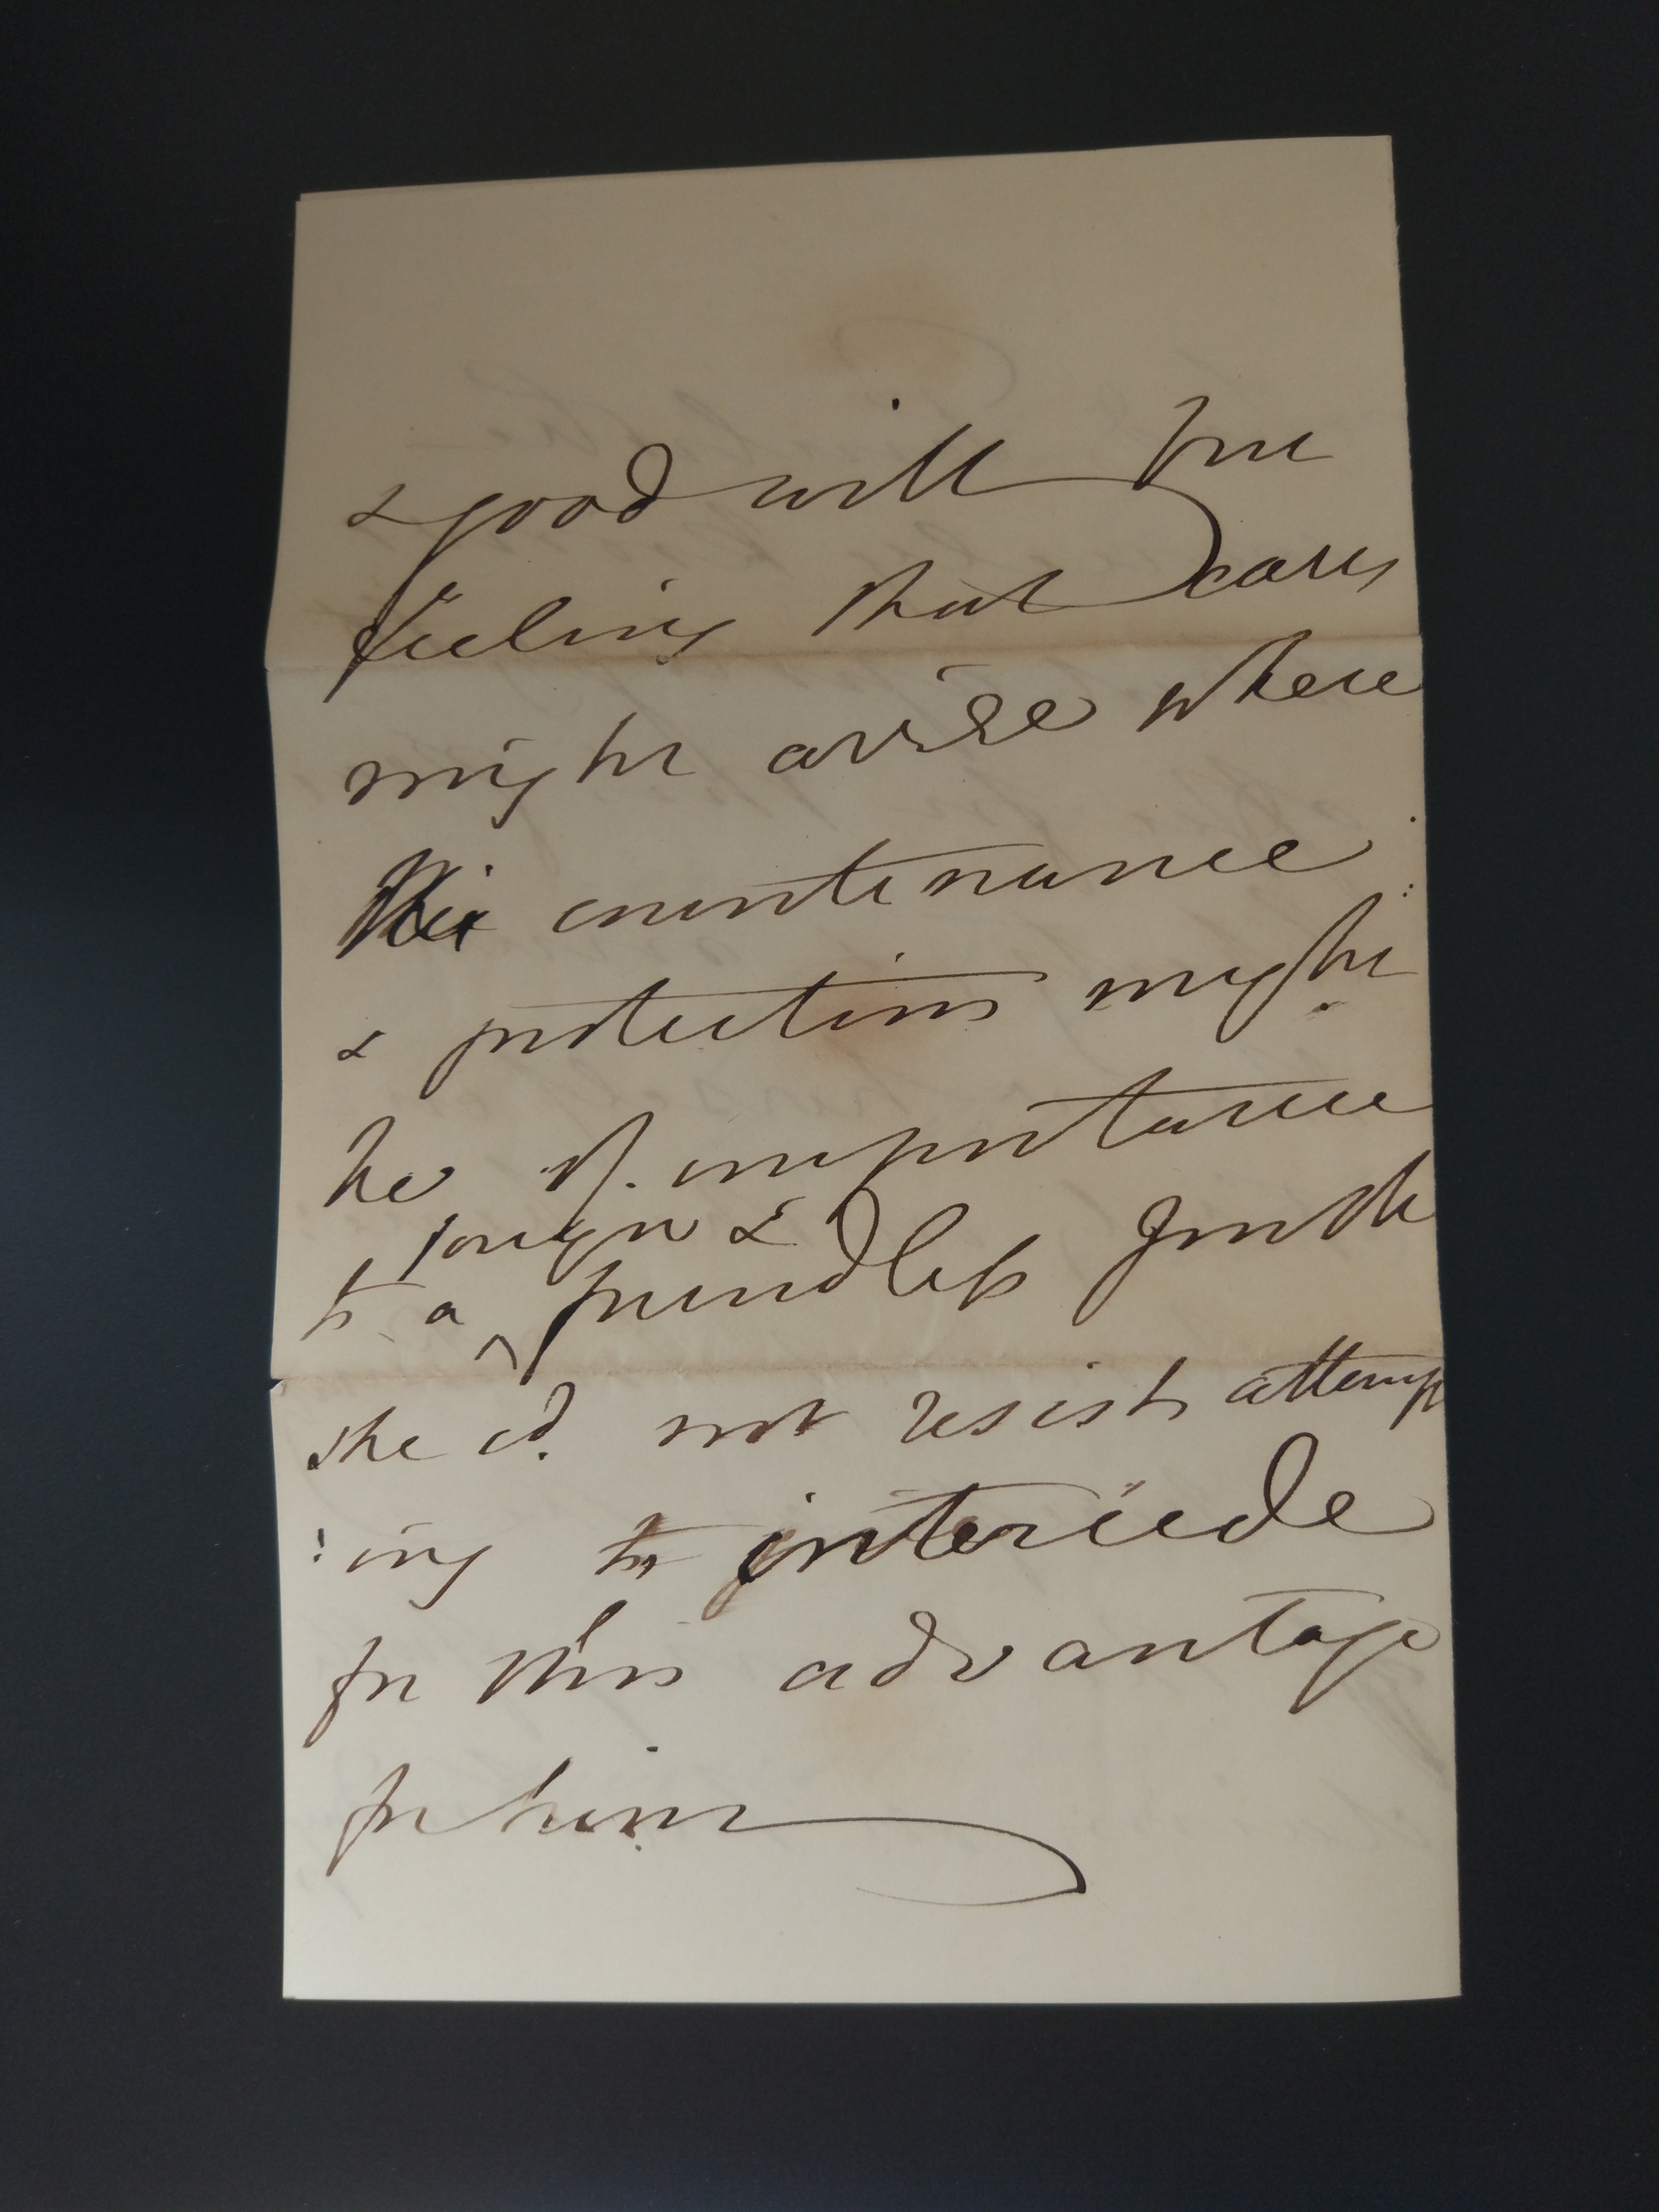 & good will for
feeling that cases
might arise where
his countenance
& protection might
be of importance
to a young & friendless youth
she cd. not resist attemp
:ing to intercede
for this advantage
for him